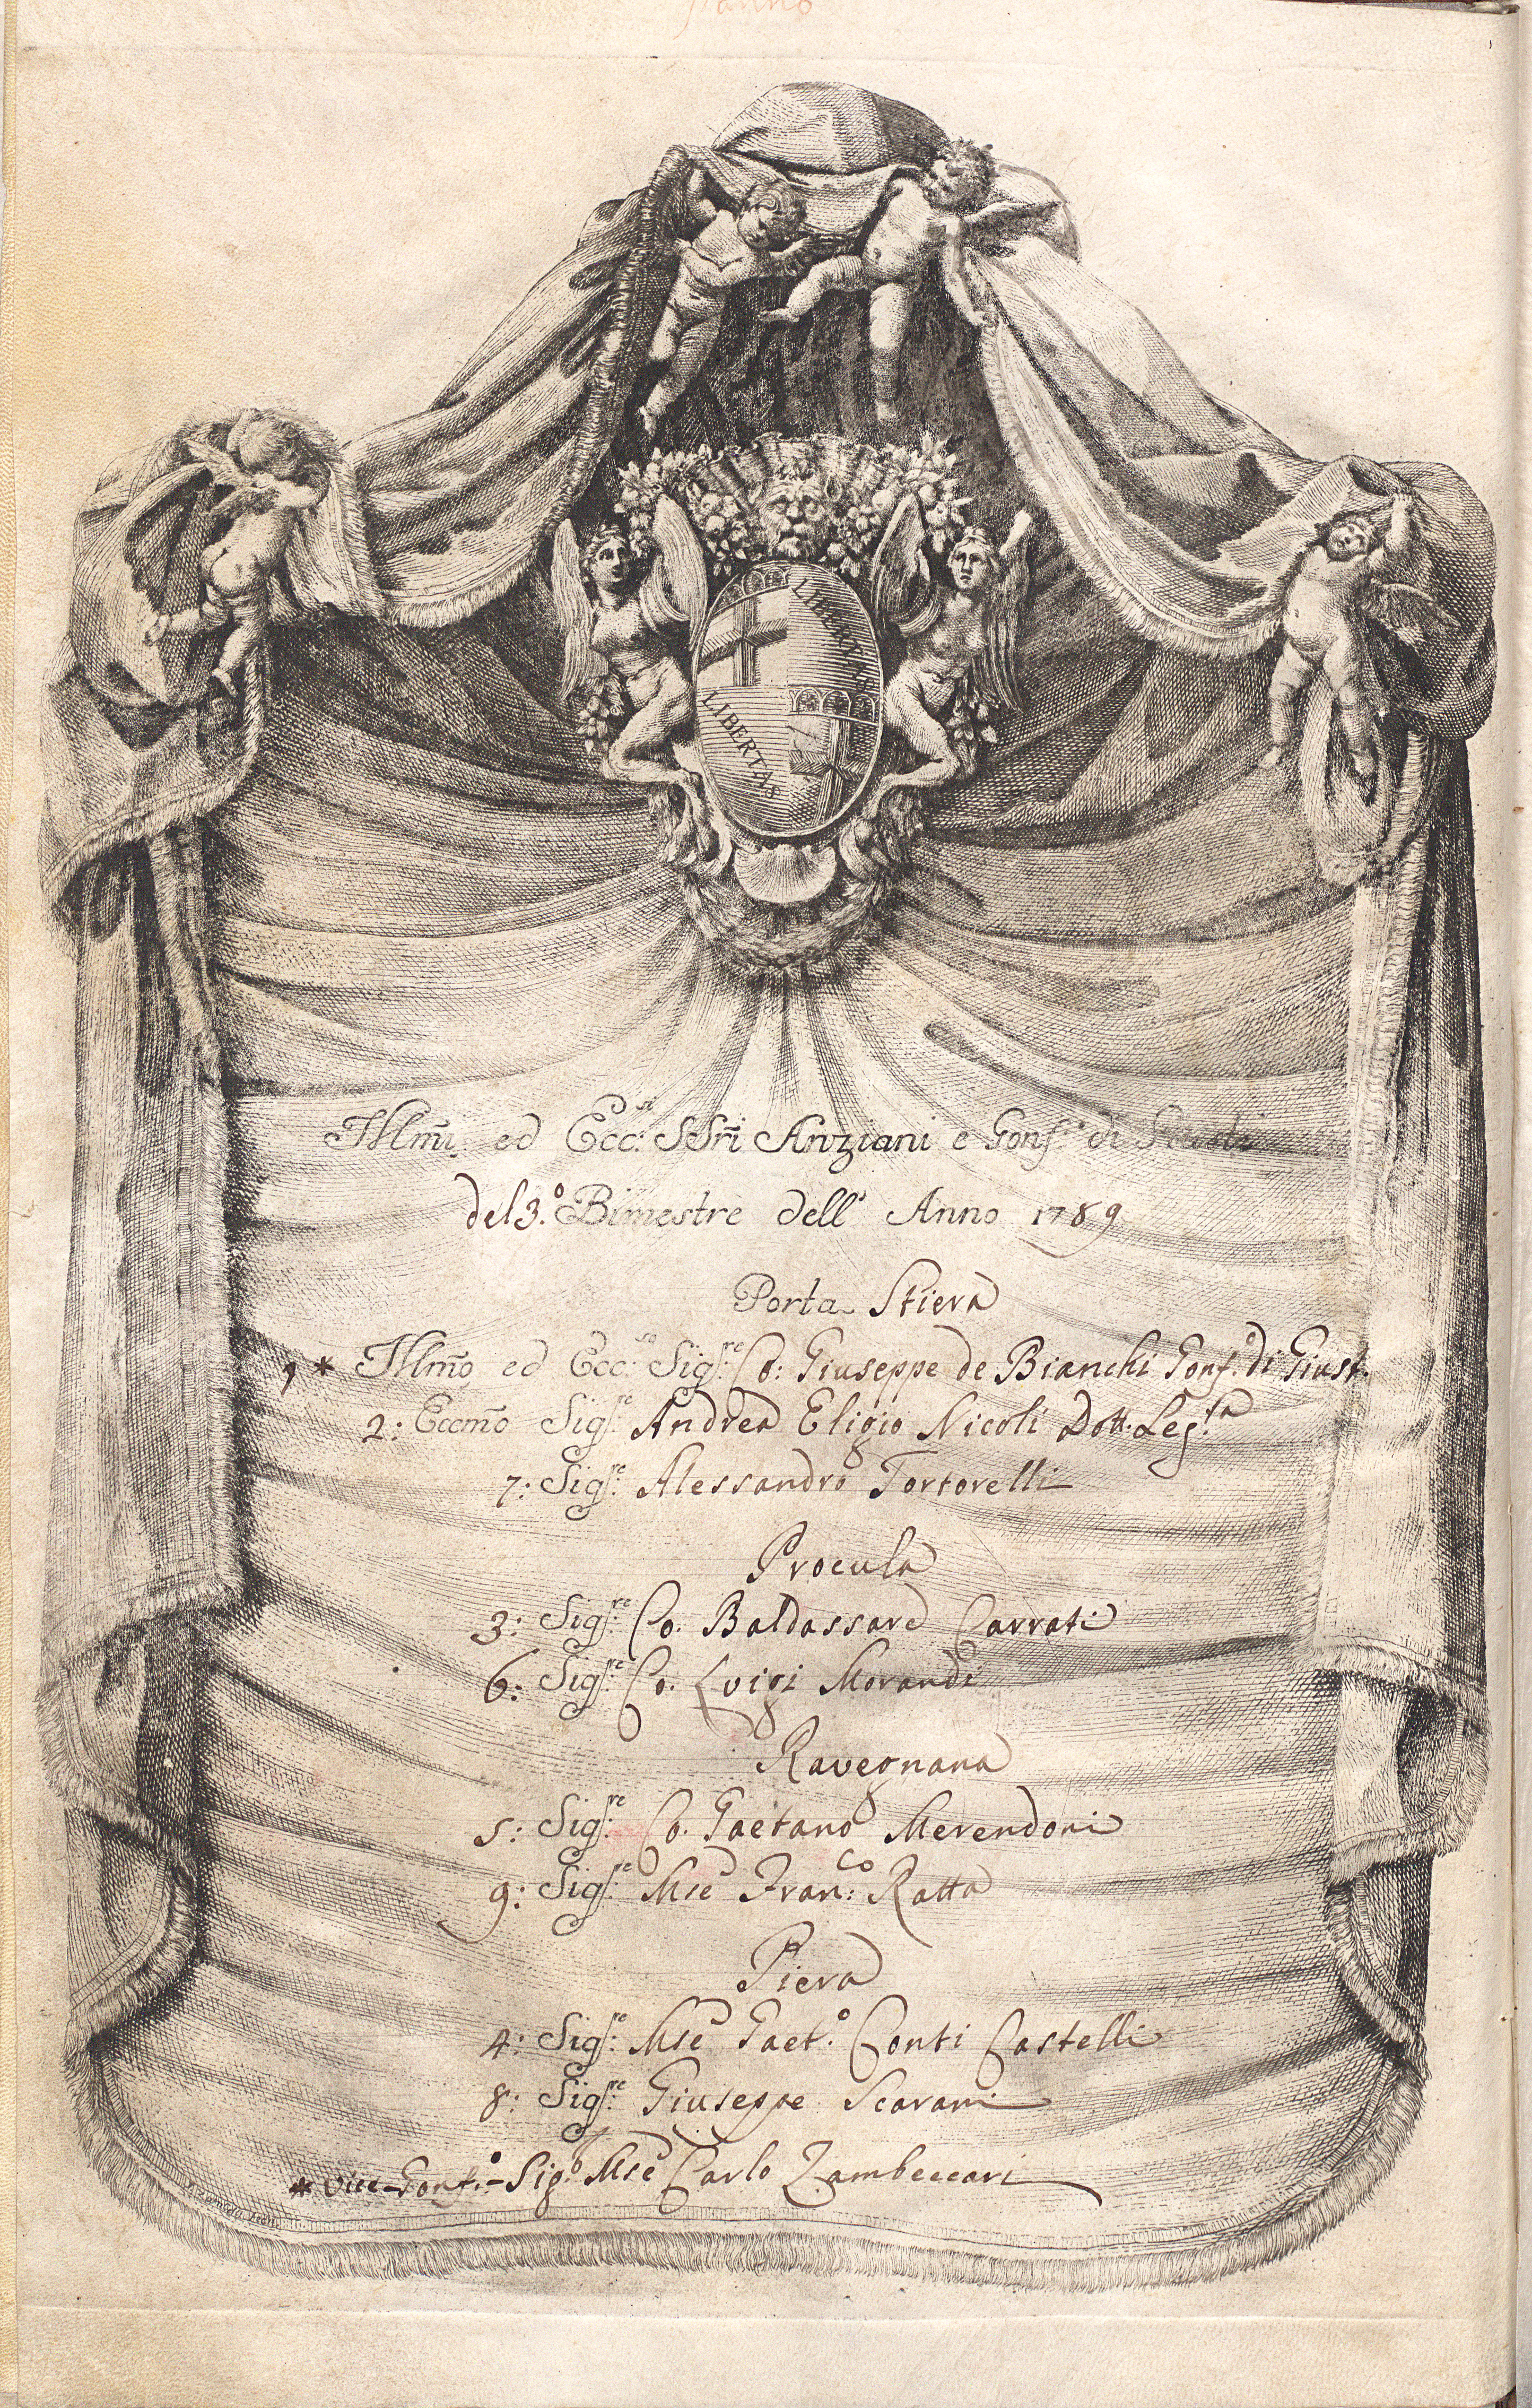 LIBERTAS
LIBERTAS
Illm̃i ed Ecc.si SSri Anziani e Gonf.e di
del 3.o Bimestre dell' Anno 1789
Porta Stiera
1 * Illm̃o ed Ecc.so Sig.re Co: Giuseppe de Bianchi Gonf.o di Giust.
2: Eccm̃o Sig.re Andrea Eligio Nicoli Dott. Leg.ta
7: Sig.re Alessandro Tortorelli
Procula
3: Sig.re Co. Baldassare Carrati
6: Sig.re Co. Luigi Morandi
Ravegnana
5: Sig.re Co. Gaetano Merendoni
9: Sig.re Mse Fran:co Ratta
Piera
4: Sig.re Mse Gaet.o Conti Castelli
8: Sig.re Giuseppe Scarani
* Vice-Gonf.o - Sig.e Mse Carlo Zambeccari